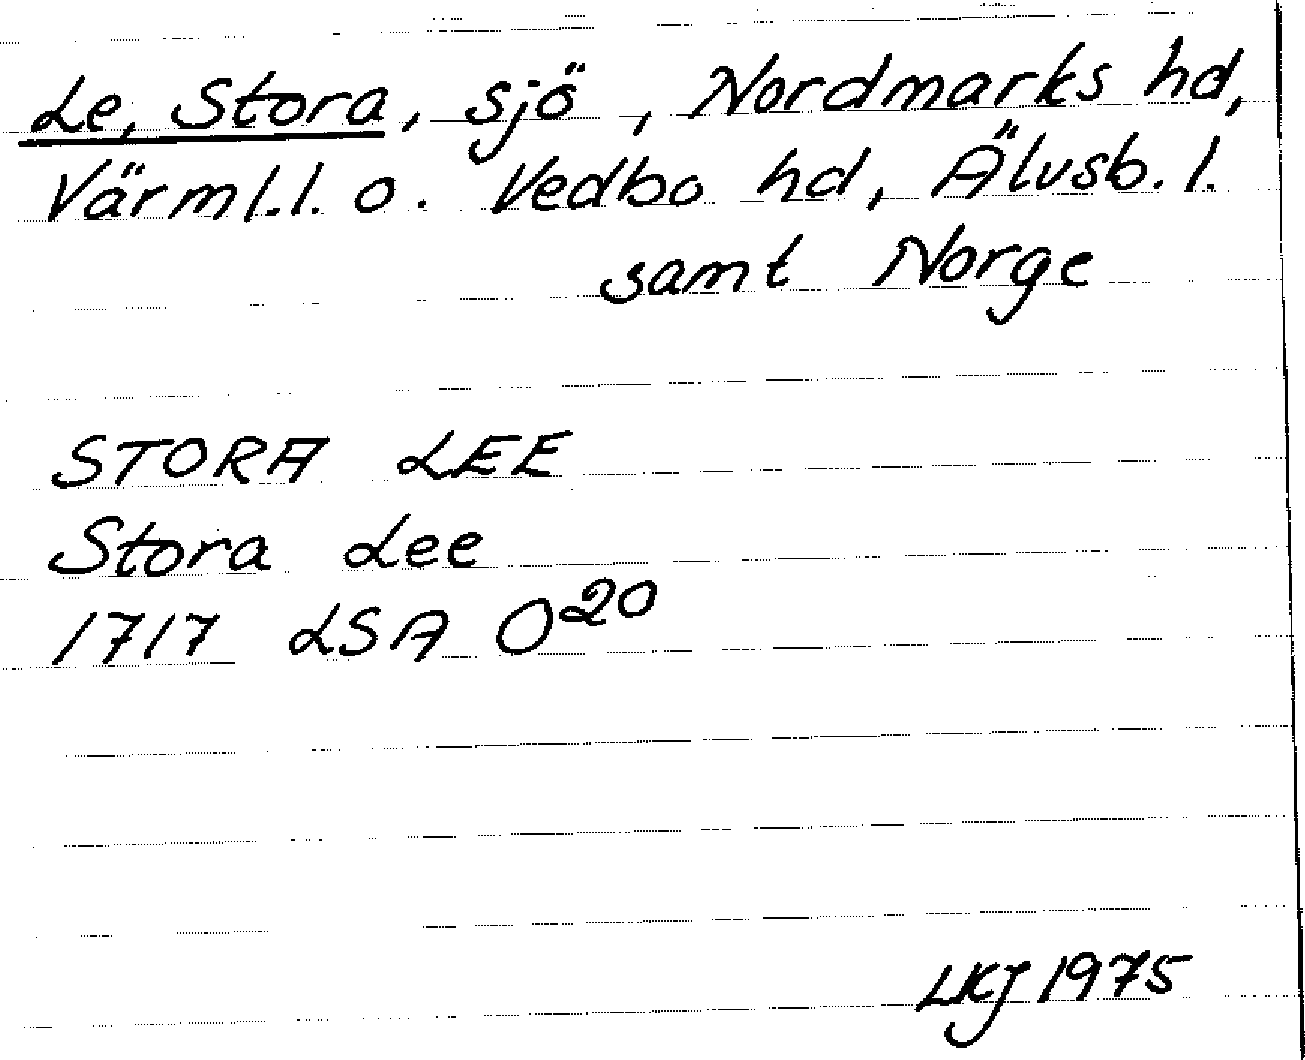 Le, Stora, sjö, Nordmarks hd,
Värml.l. o. Vedbo hd, Älvsb. l.
samt Norge
STORA LEE
Stora Lee
1717 LSA O²⁰
LKJ 1975